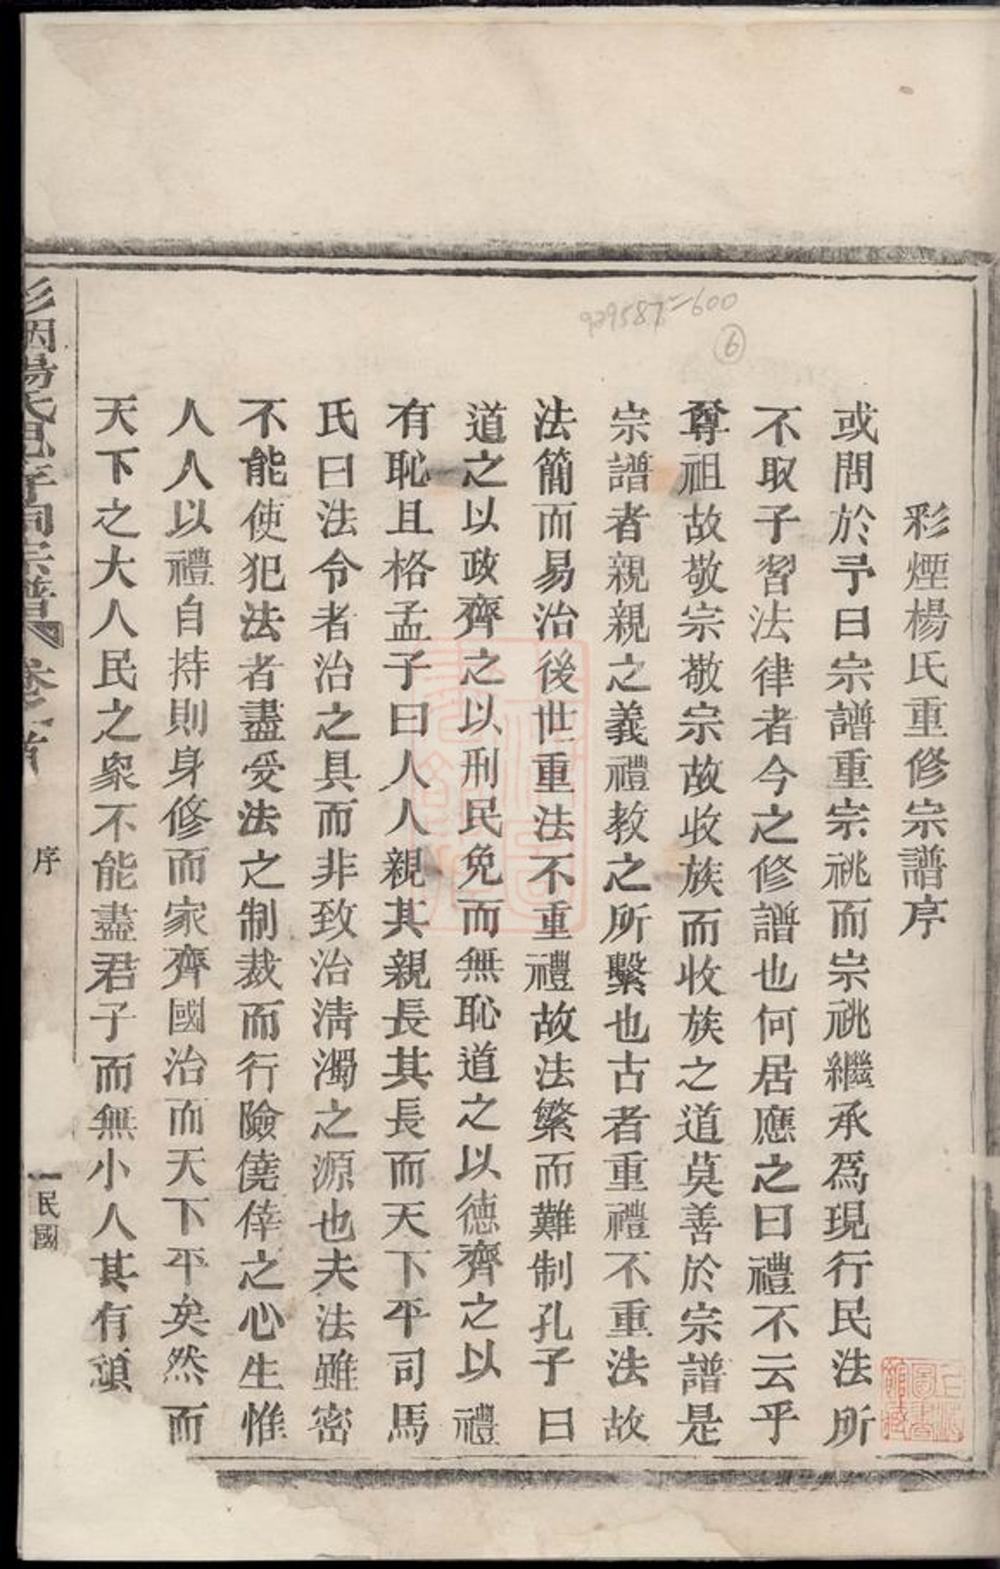 彩煙楊氏重修宗譜序
或問於予曰宗譜重宗祧而宗祧繼承爲現行民法所
不取子習法律者今之修譜也何居應之曰禮不云乎
尊祖故敬宗敬宗故收族而收族之道莫善於宗譜是
宗譜者親親之義禮教之所繫也古者重禮不重法故
法簡而易治後世重法不重禮故法繁而難制孔子曰
道之以政齊之以刑民免而無恥道之以德齊之以禮
有恥且格孟子曰人人親其親長其長而天下平司馬
氏曰法令者治之具而非致治淸濁之源也夫法雖密
不能使犯法者盡受法之制裁而行險僥倖之心生惟
人人以禮自持則身修而家齊國治而天下平矣然而
天下之大人民之衆不能盡君子而無小人其有頑
序
一民國
929587=600
6